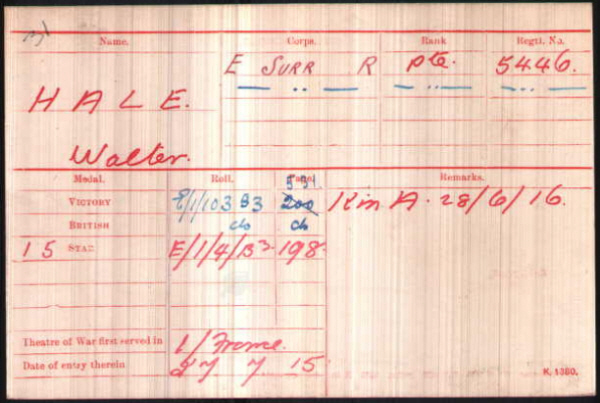 Name. Corps. Rank Regtl. No.
E SURR R Pte. 5446.
— .. — — .. — — ... —
HALE.
Walter.
Medal. Roll. Page. Remarks.
531
VICTORY E/1/103 B3 200 Kin A. 28/6/16.
BRITISH do do
15 STAR E/1/4/B3. 198.
Theatre of War first served in 1/ France.
Date of entry therein 27 7 15
K. 1380.